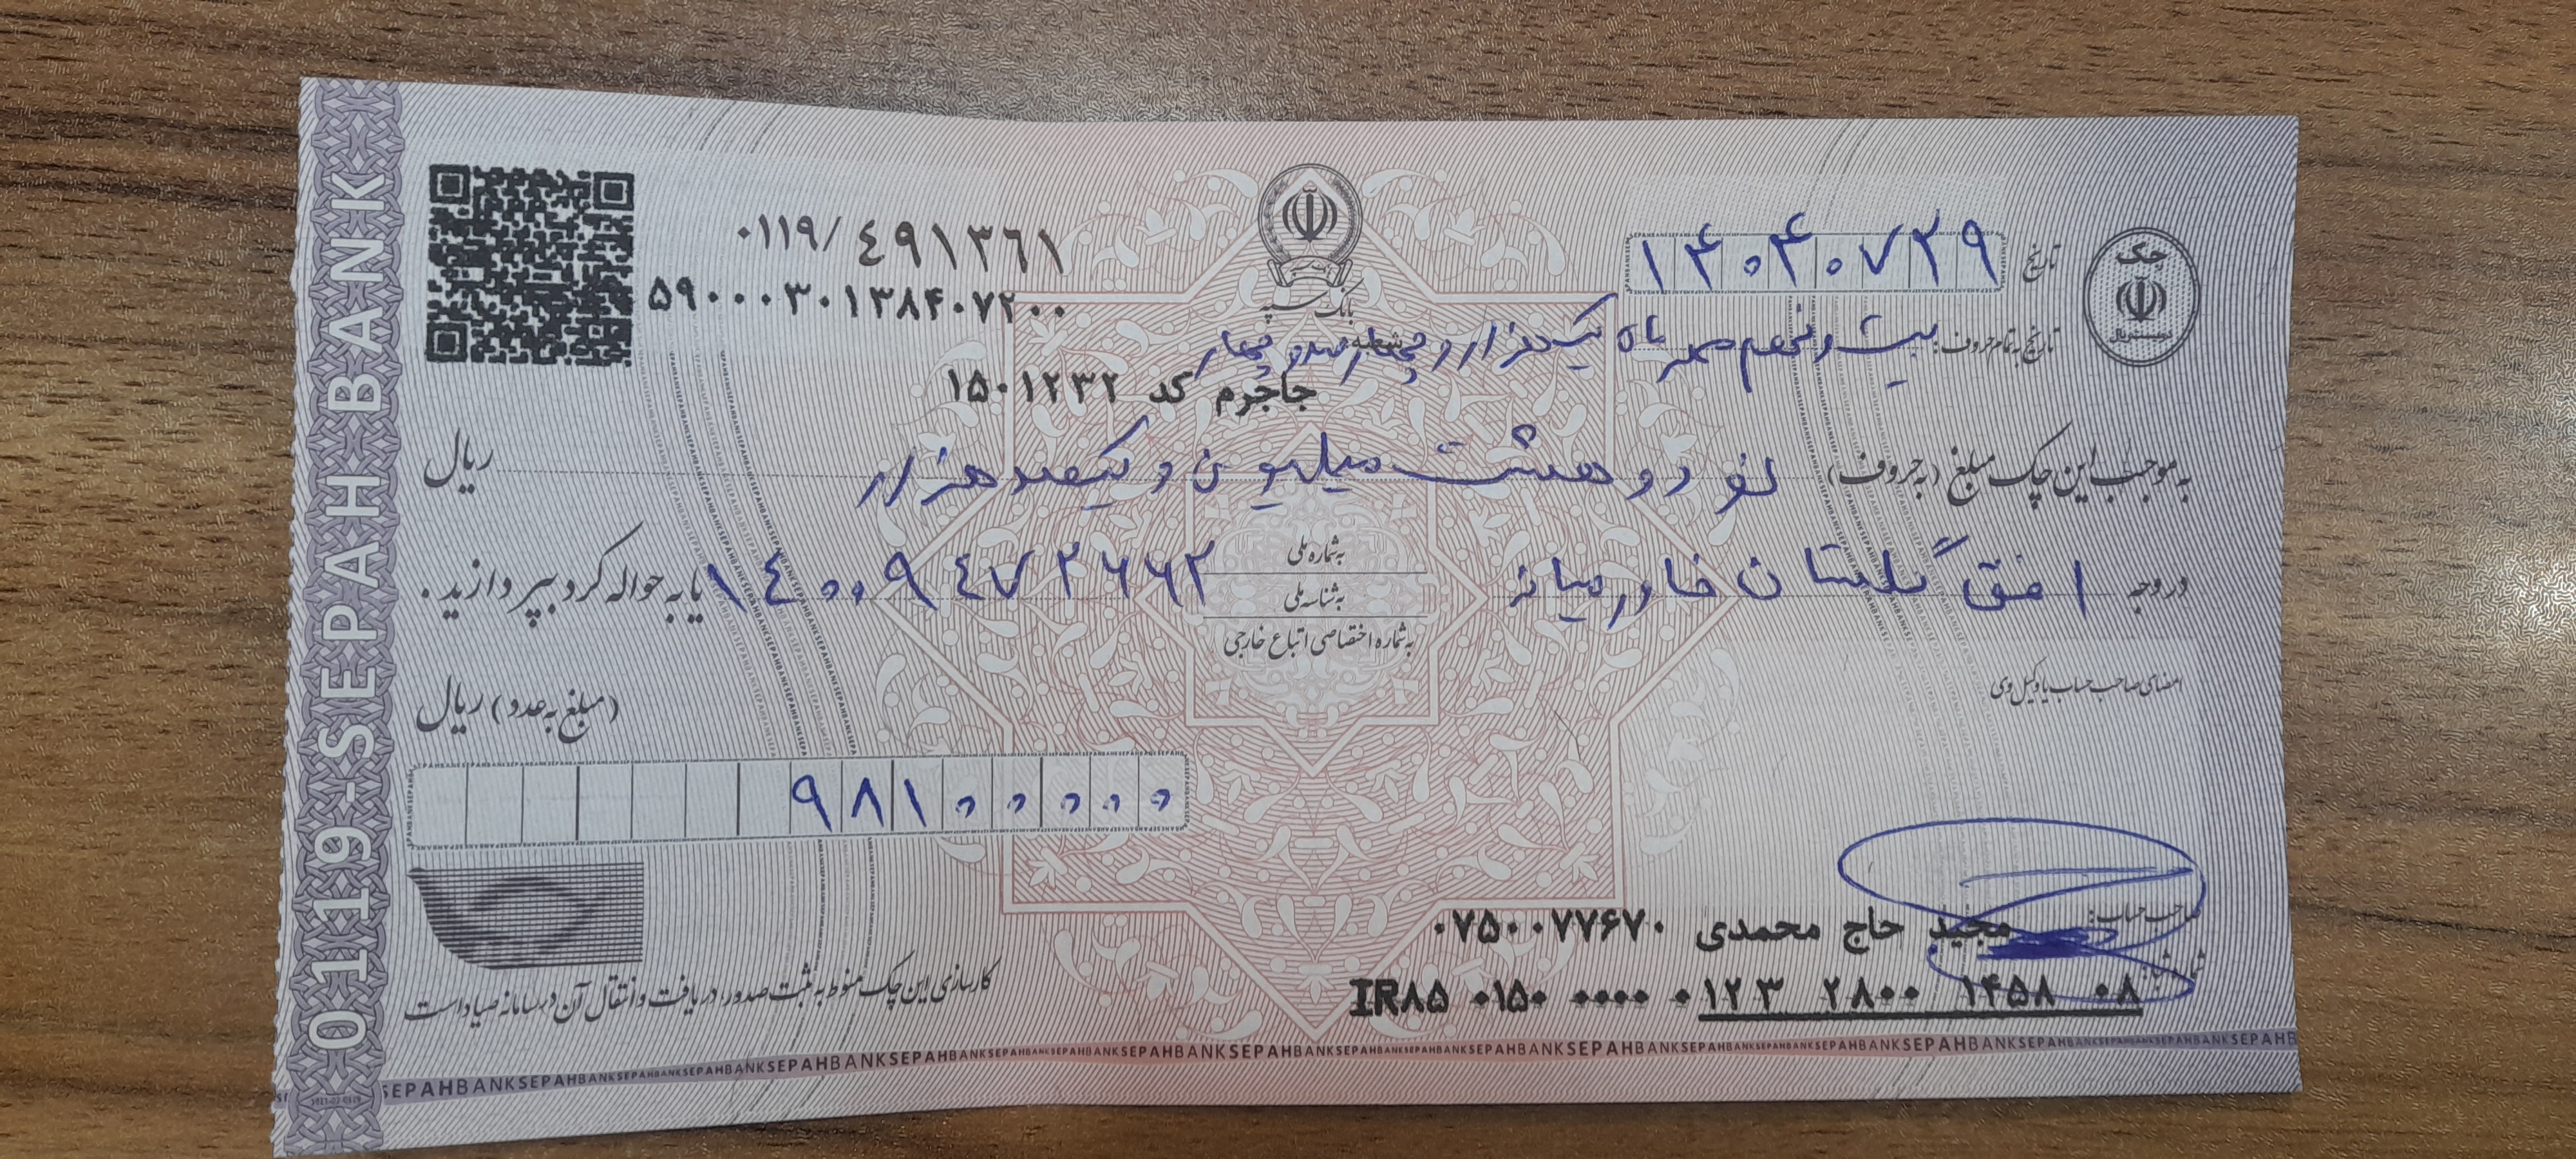 0119-SEPAH BANK
چک
تاریخ ۱۴۰۴۰۷۲۹
۰۱۱۹/ ٤۹۱۳٦۱
۵۹۰۰۰۳۰۱۳۸۴۰۷۲۰۰
بانک سپه
تاریخ به تمام حروف: بیست و نهم مهر ماه یکهزار و چهارصد و چهار
شعبه
جاجرم کد ۱۵۰۱۲۳۲
به موجب این چک مبلغ (به حروف) نود و هشت میلیون و یکصد هزار ریال
در وجه افق گلستان خاورمیانه
به شماره ملی
به شناسه ملی
به شماره اختصاصی اتباع خارجی
۱٤۰۰۹٤۷۲۶۶۲ یا به حواله کرد بپردازید.
امضای صاحب حساب یا وکیل وی
(مبلغ به عدد) ریال
۹۸۱۰۰۰۰۰
صاحب حساب: مجید حاج محمدی ۰۷۵۰۰۷۷۶۷۰
IR۸۵ ۰۱۵۰ ۰۰۰۰ ۰۱۲۳ ۲۸۰۰ ۱۴۵۸ ۰۸
کارسازی این چک منوط به ثبت صدور، دریافت و انتقال آن در سامانه صیاد است
SEPAHBANKSEPAHBANKSEPAHBANKSEPAHBANK